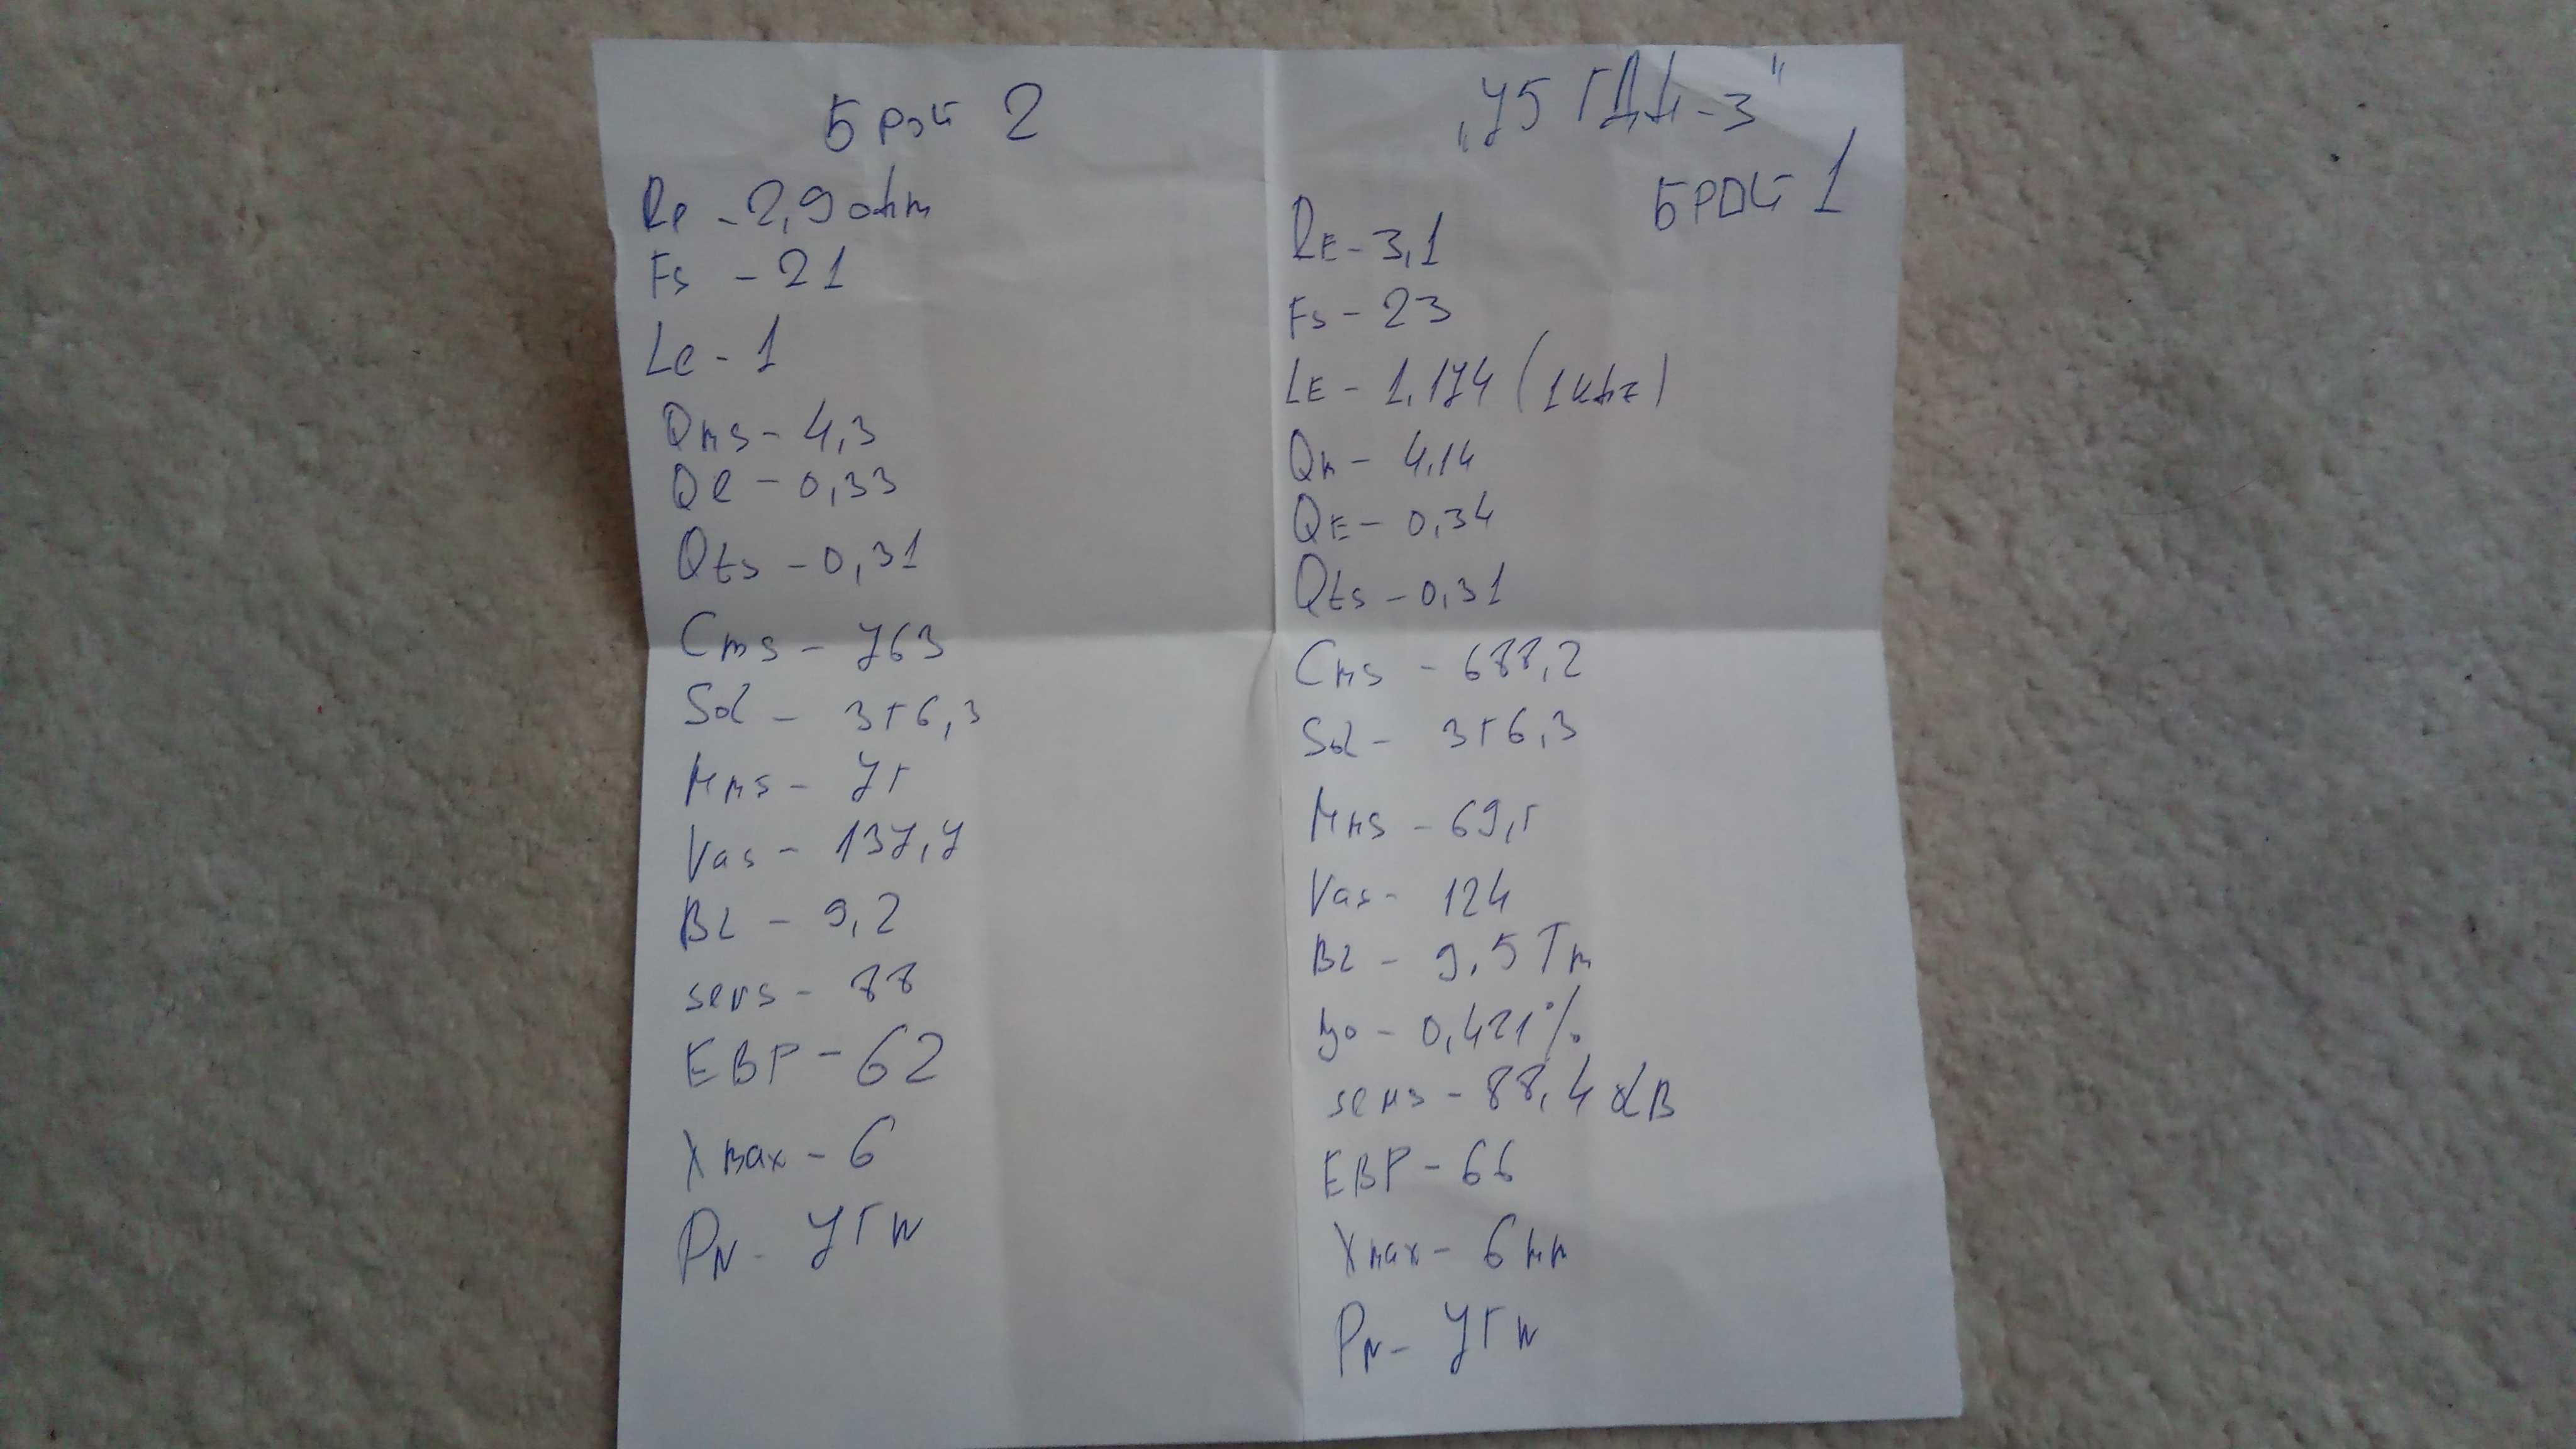 БРОЙ 2
Re - 2,9 ohm
Fs - 21
Le - 1
Qms - 4,3
Qe - 0,33
Qts - 0,31
Cms - 763
Sd - 356,3
Mms - 75
Vas - 137,7
BL - 9,2
sens - 88
EBP - 62
Xmax - 6
PN - 75 W
„75 ГДН-3"
БРОЙ 1
RE - 3,1
Fs - 23
LE - 1,174 (1 khz)
Qm - 4,14
QE - 0,34
Qts - 0,31
Cms - 688,2
Sd - 356,3
Mms - 69,5
Vas - 124
BL - 9,5 Tm
ηo - 0,421%
sens - 88,4 dB
EBP - 66
Xmax - 6 mm
PN - 75 W